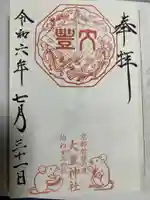 奉拝
大豐
大豊神社
令和六年
七月三十一日